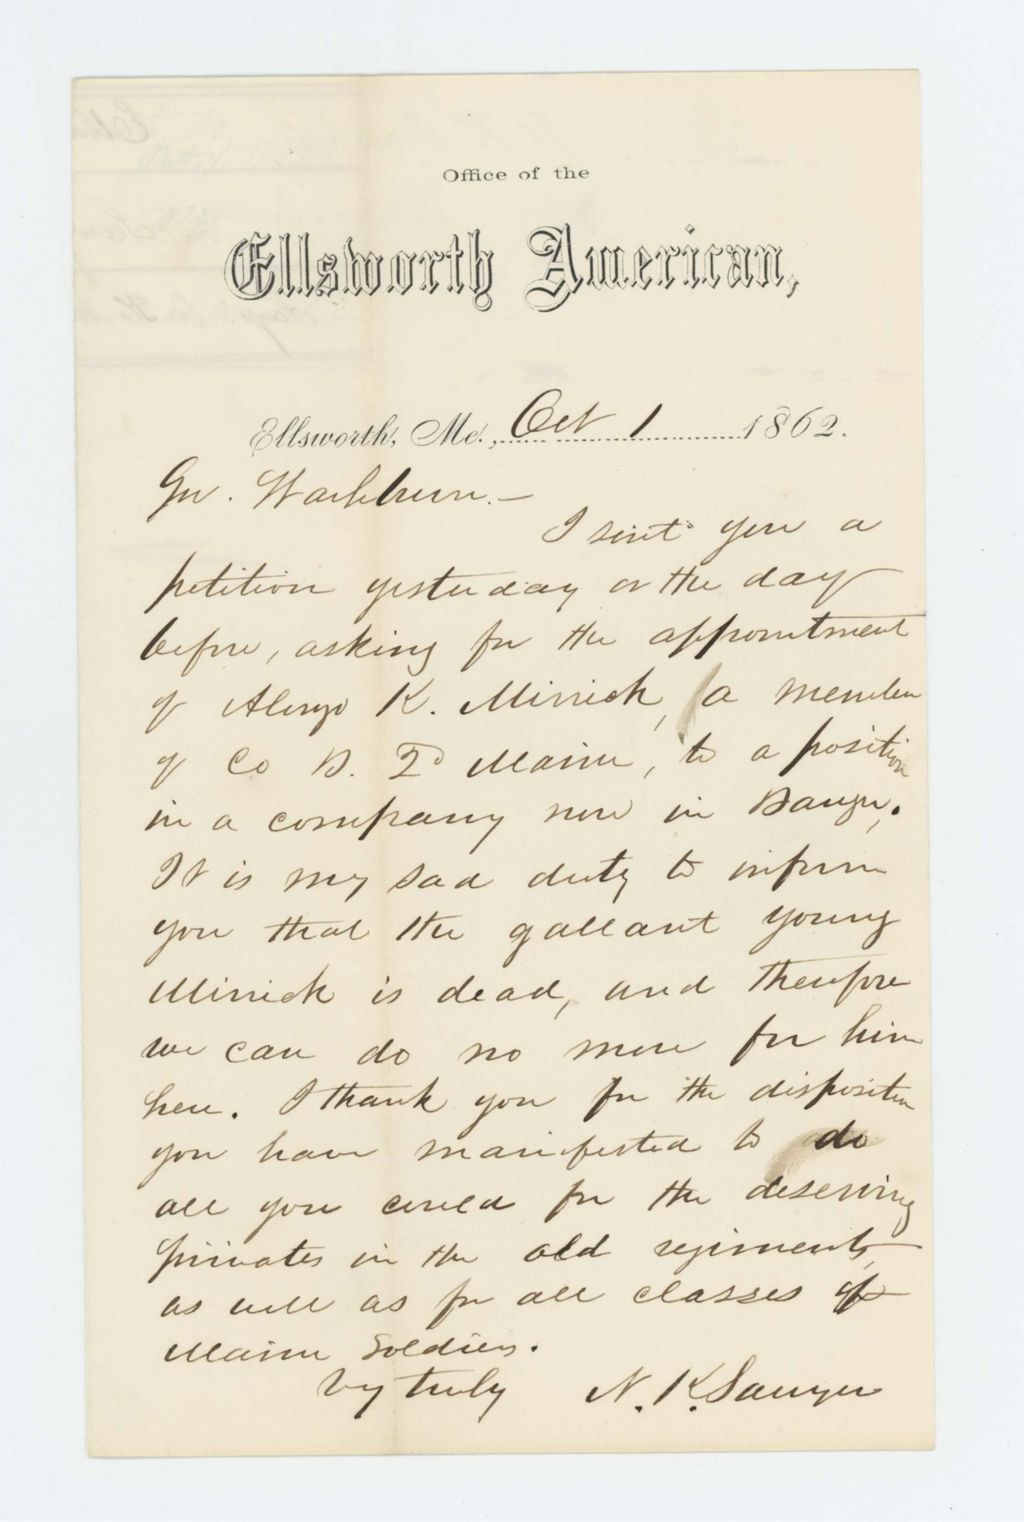 Office of the
Ellsworth American,
Ellsworth, Me., Oct 1 1862.
Gov. Washburn. —
I sent you a
petition yesterday or the day
before, asking for the appointment
of Alonzo K. Mirrick, a member
of Co B. 2D Maine, to a position
in a company now in Bangor.
It is my sad duty to inform
you that the gallant young
Mirrick is dead, and therefore
we can do no more for him
here. I thank you for the disposition
you have manifested to do
all you could for the deserving
privates in the old regiments,
as well as for all classes of
Maine Soldiers.
Vy truly N. K. Sawyer